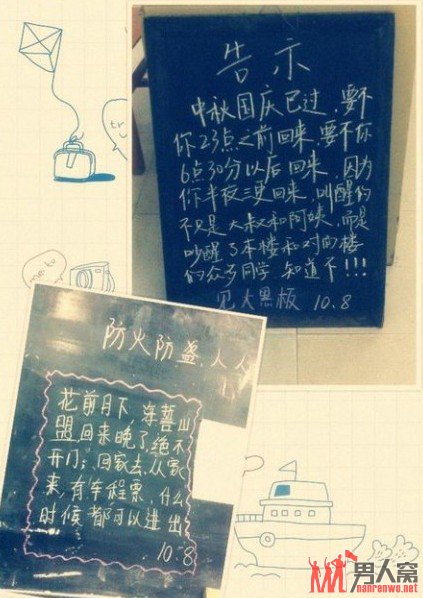 告示
中秋国庆已过,要不
你23点之前回来,要不你
6点30分以后回来,因为
你半夜三更回来,叫醒的
不只是大叔和阿姨,而是
吵醒了本楼和对面楼
的众多同学 知道不!!!
见大黑板 10.8
防火防盗,人人
花前月下 海誓山
盟回来晚了绝不
开门;回家去,从家
来,有车程票,什么
时候都可以进出
10.8
男人窝
nanrenwo.net